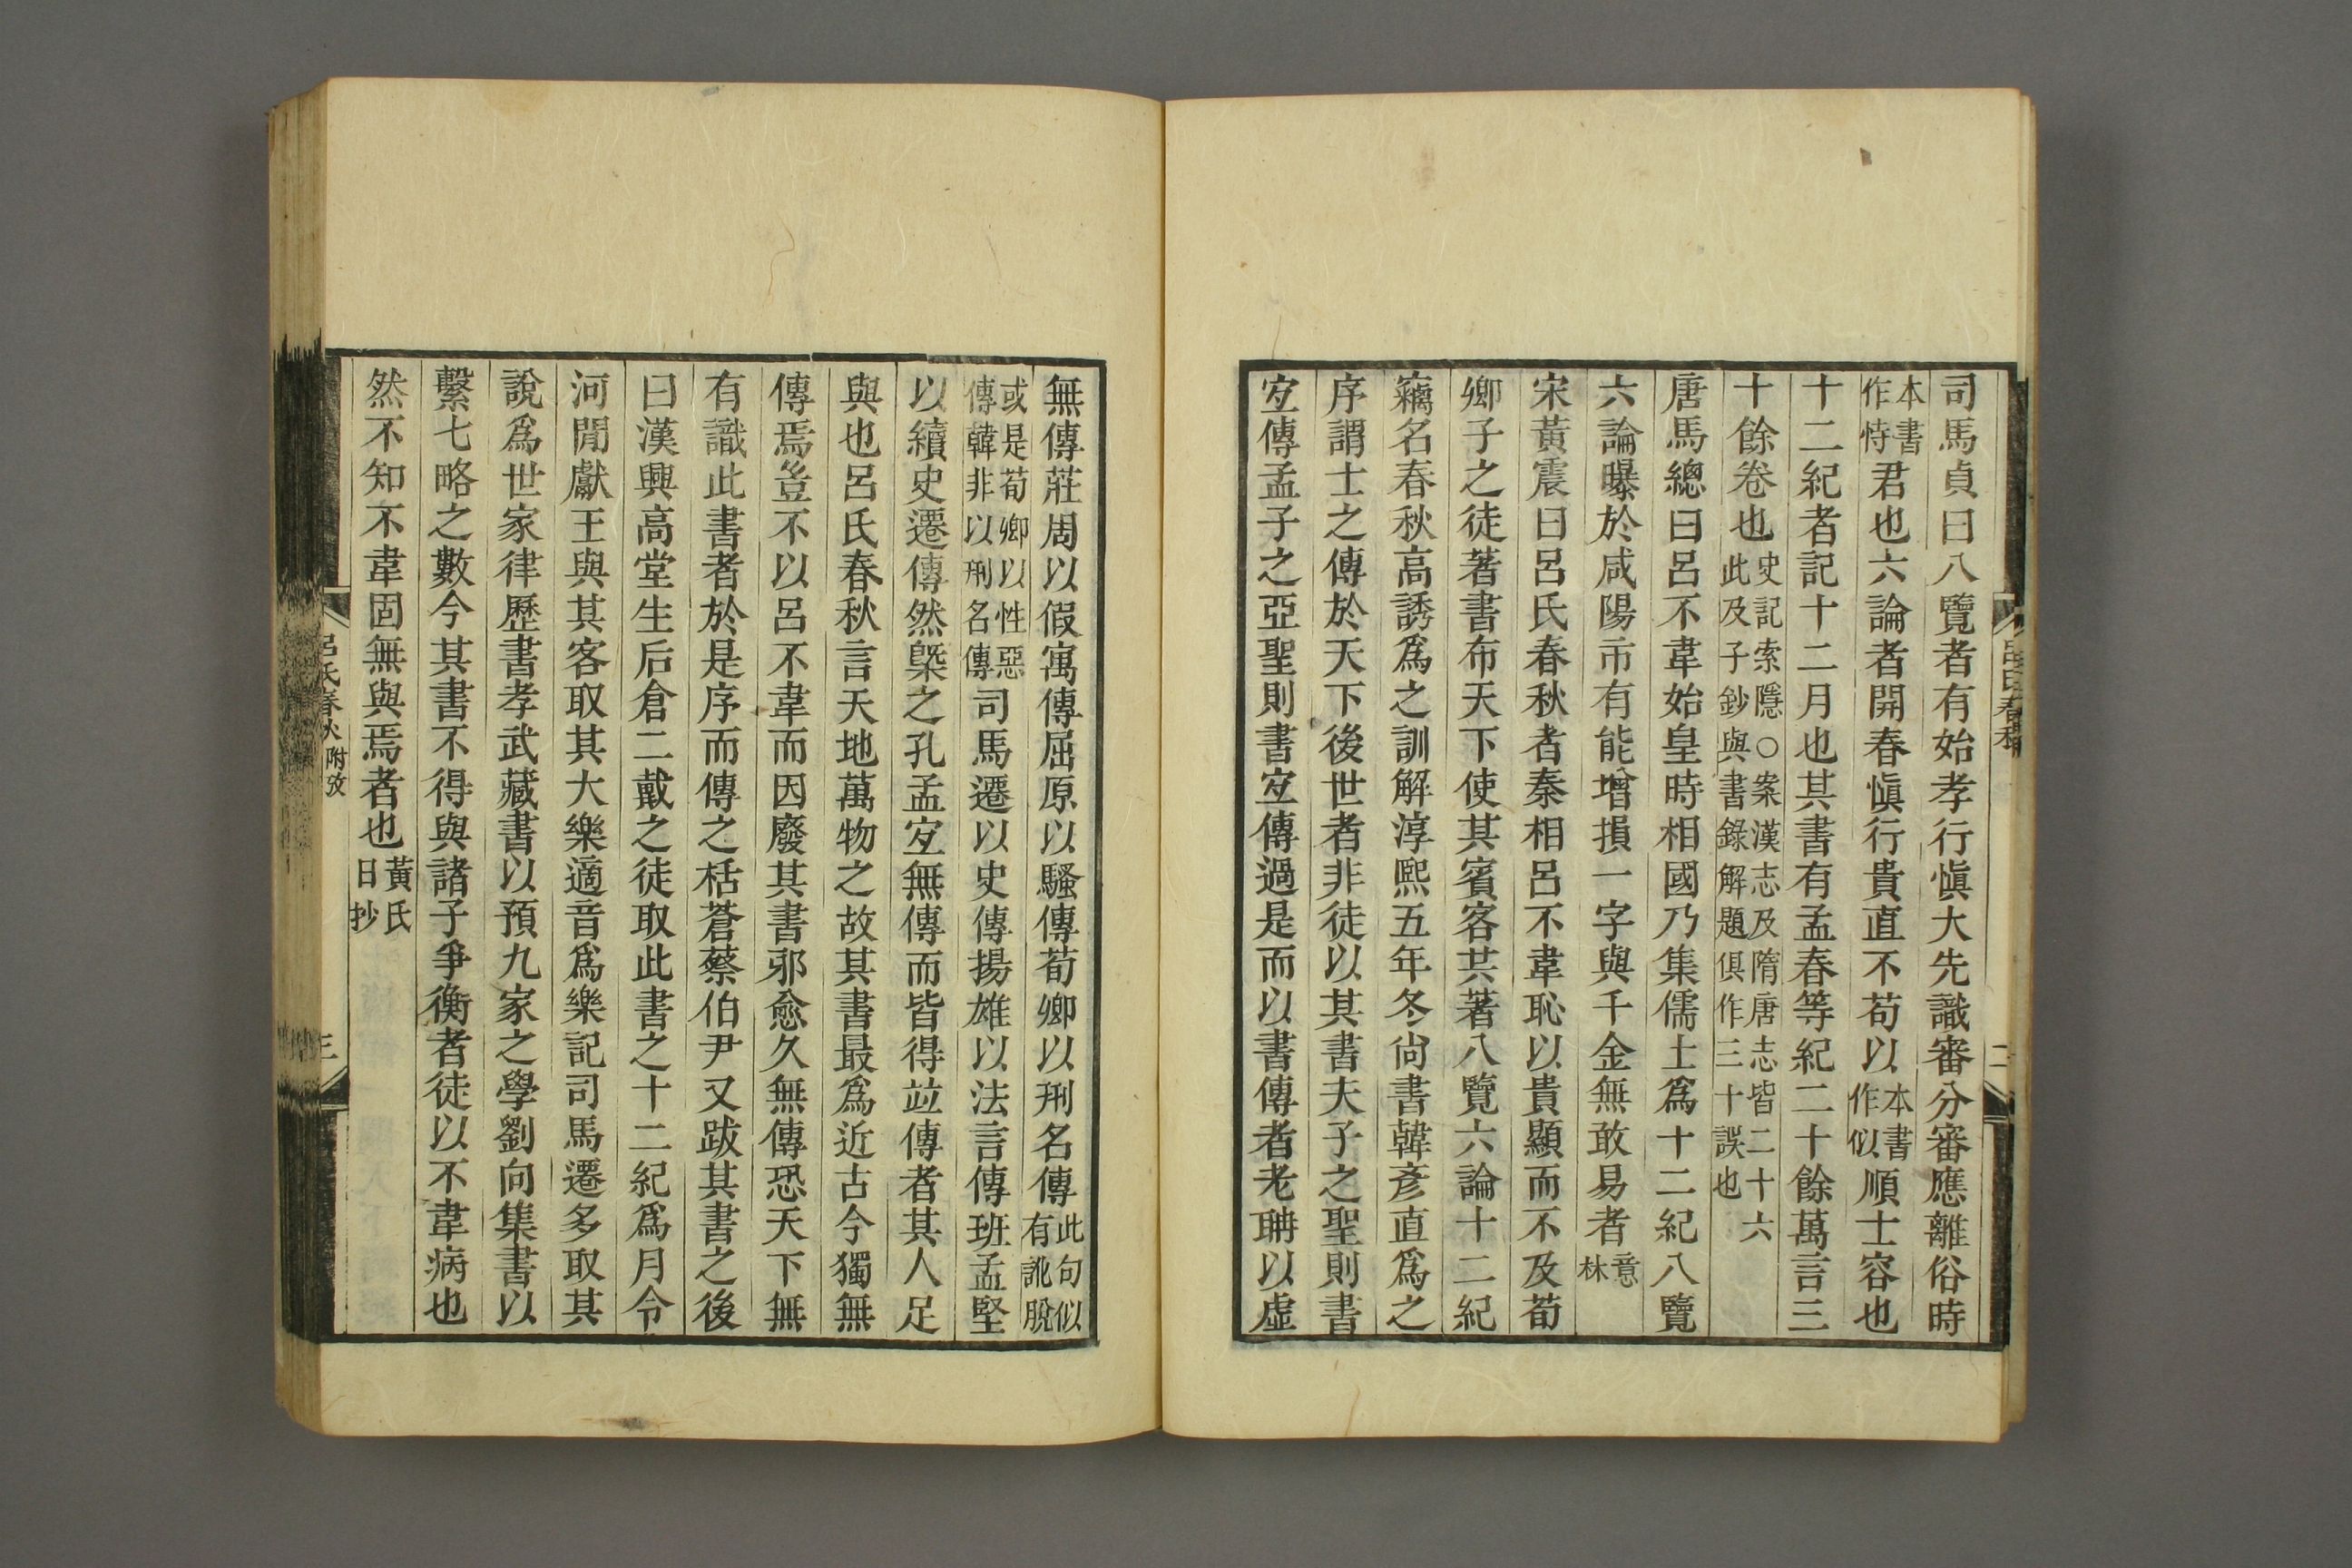 司馬貞曰八覽者有始孝行愼大先識審分審應離俗時
本書作恃君也六論者開春愼行貴直不苟以本書作似順士容也
十二紀者記十二月也其書有孟春等紀二十餘萬言三
十餘卷也史記索隱○案漢志及隋唐志皆二十六此及子鈔與書錄解題俱作三十誤也
唐馬總曰呂不韋始皇時相國乃集儒士爲十二紀八覽
六論曝於咸陽市有能增損一字與千金無敢易者意林
宋黃震曰呂氏春秋者秦相呂不韋恥以貴顯而不及荀
卿子之徒著書布天下使其賓客共著八覽六論十二紀
竊名春秋高誘爲之訓解淳熙五年冬尙書韓彥直爲之
序謂士之傳於天下後世者非徒以其書夫子之聖則書
宐傳孟子之亞聖則書宐傳過是而以書傳者老聃以虛
無傳莊周以假寓傳屈原以騷傳荀卿以刑名傳此句似有訛脫
或是荀卿以性惡傳韓非以刑名傳司馬遷以史傳揚雄以法言傳班孟堅
以續史遷傳然槩之孔孟宐無傳而皆得竝傳者其人足
與也呂氏春秋言天地萬物之故其書最爲近古今獨無
傳焉豈不以呂不韋而因廢其書邪愈久無傳恐天下無
有識此書者於是序而傳之栝蒼蔡伯尹又跋其書之後
曰漢興高堂生后倉二戴之徒取此書之十二紀爲月令
河閒獻王與其客取其大樂適音爲樂記司馬遷多取其
說爲世家律歷書孝武藏書以預九家之學劉向集書以
繫七略之數今其書不得與諸子爭衡者徒以不韋病也
然不知不韋固無與焉者也黃氏日抄
呂氏春秋附攷
三